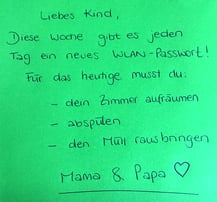 Liebes Kind,
Diese Woche gibt es jeden
Tag ein neues WLAN-Passwort!
Für das heutige musst du:
- dein Zimmer aufräumen
- abspülen
- den Müll rausbringen
Mama & Papa ♡